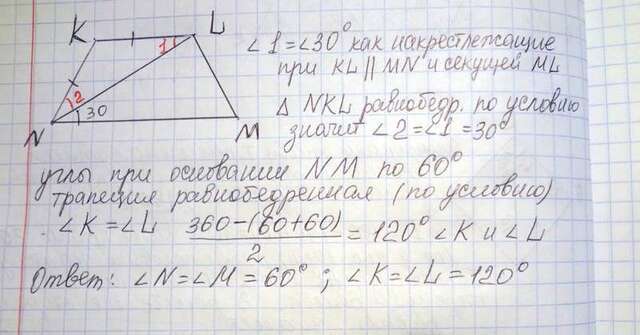 K L
1
2
30
N M
∠1=∠30° как накрестлежащие
при KL || MN и секущей ML
Δ NKL равнобедр. по условию
значит ∠2=∠1=30°
углы при основании NM по 60°
трапеция равнобедренная (по условию)
∠K=∠L 360-(60+60)/2 = 120° ∠K и ∠L
Ответ: ∠N=∠M=60°; ∠K=∠L=120°